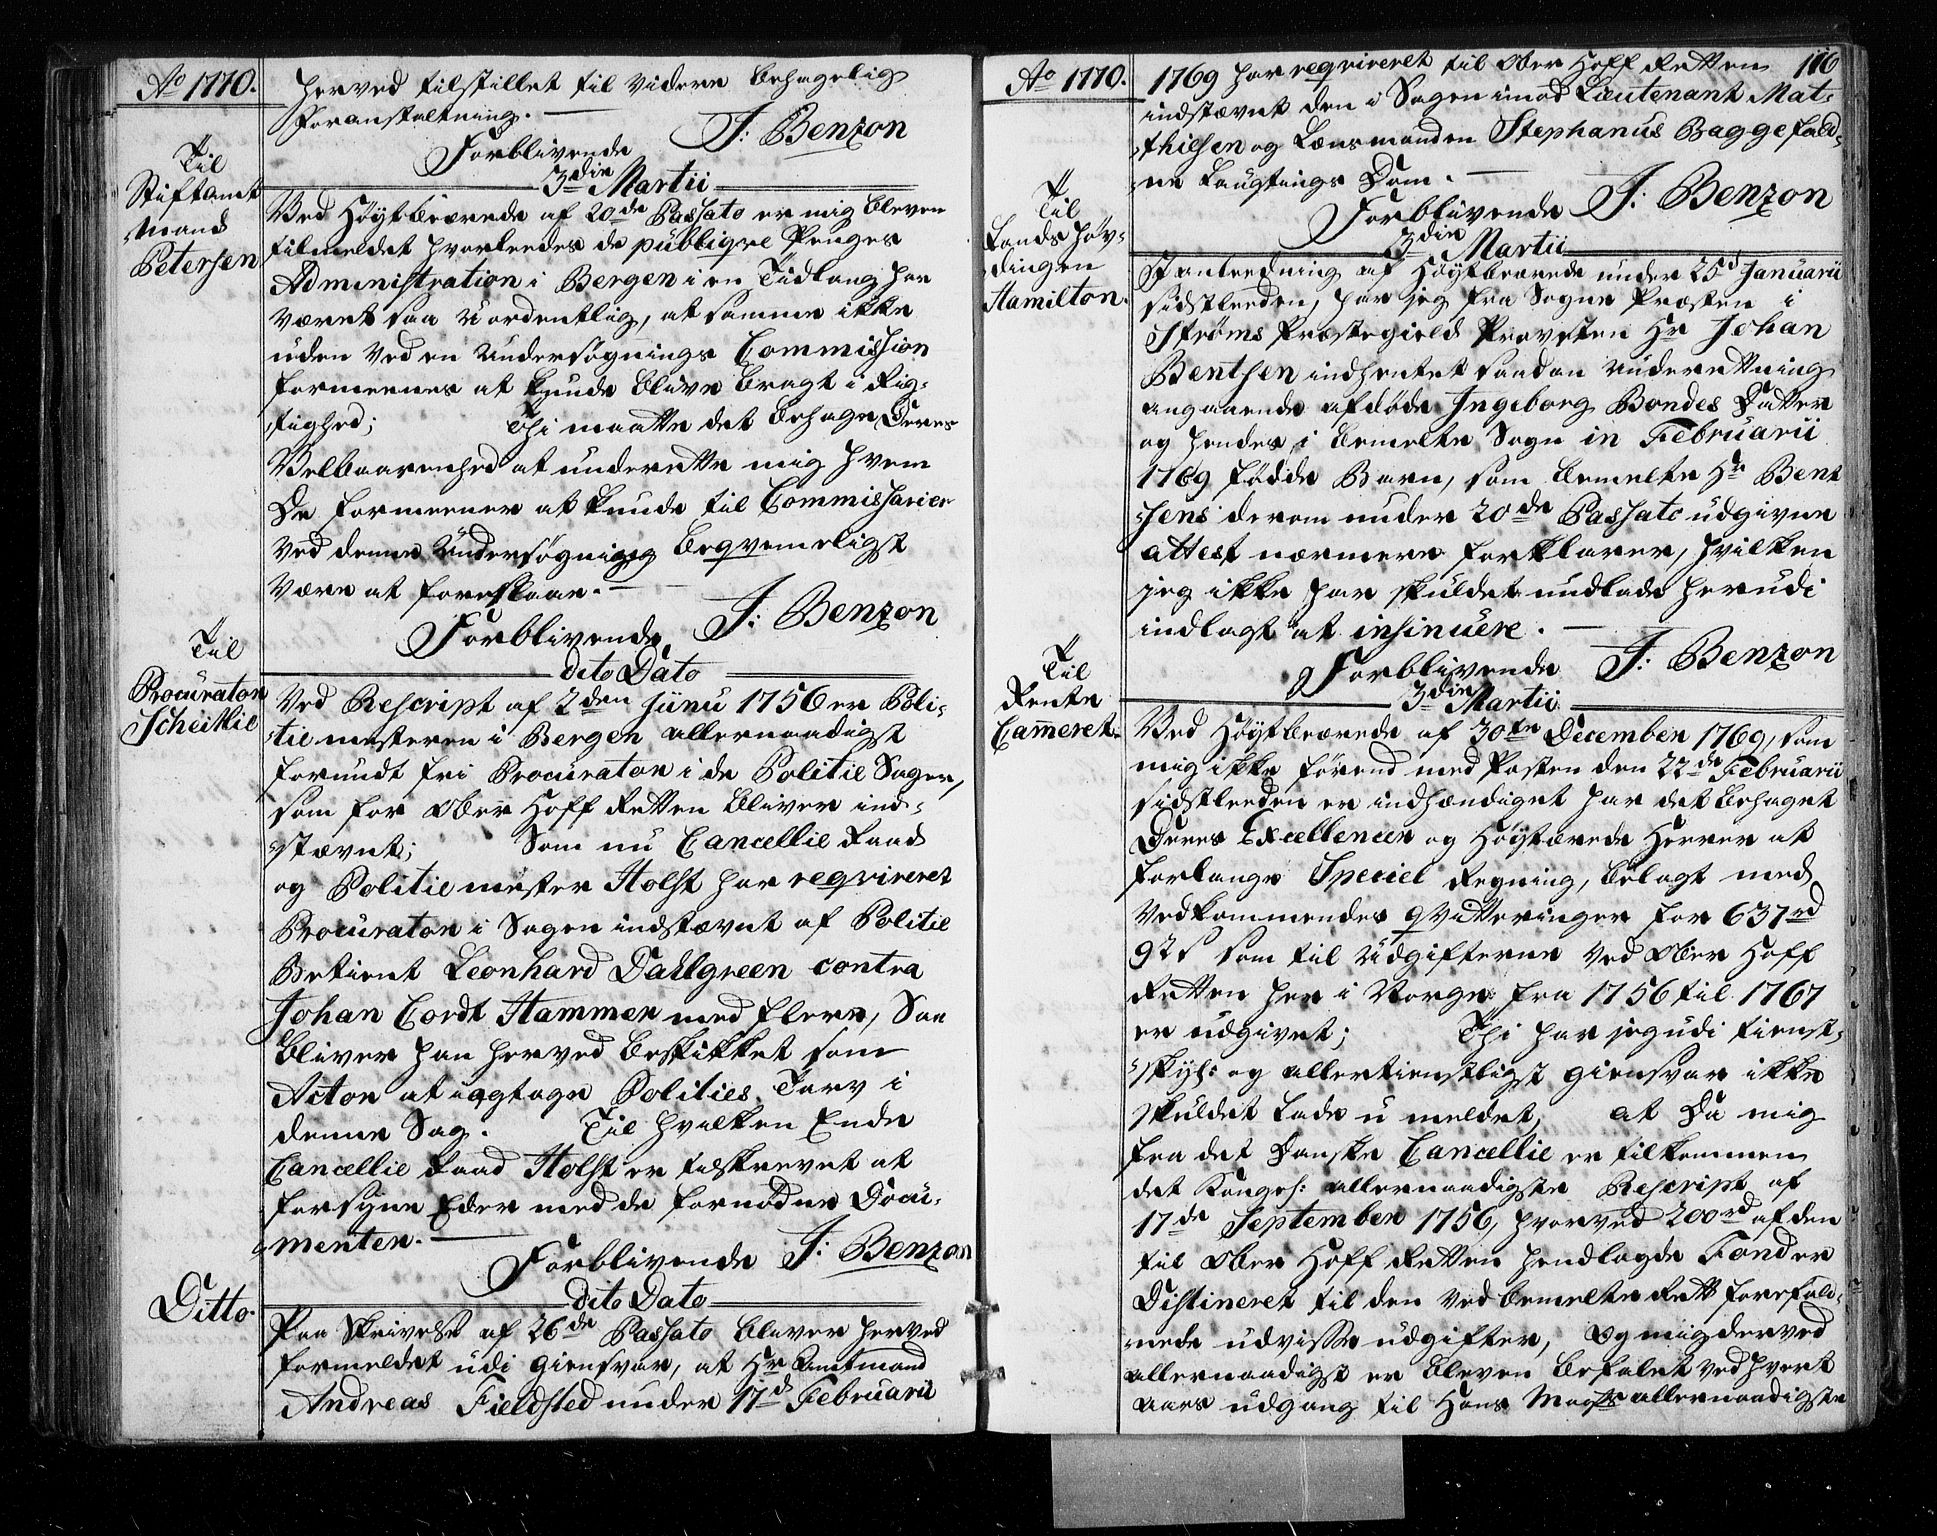 Ao 1770.
herved tilstillet til videre behagelig
Foranstaltning.
Forblivende J: Benzon
3die Martii
Til
Stiftamt
mand
Petersen
Ved Høystbeærede af 20de Passato er mig bleven
tilmeldet hvorleedes de publiqve Penges
Administration i Bergen i en Tidlang har
været saa uordentlig, at samme ikke
uden ved en Undersøgnings Commission
formeenes at kunde blive bragt i Rig-
tighed; Thi maatte det behage Deres
Velbaarenhed at underrette mig hvem
De formeener at kunde til Commissarier
ved denne Undersøgning beqvemeligst
være at foreslaae.
Forblivende J: Benzon
dito Dato
Til
Procurator
Scheitlie
Ved Rescript af 2den Junii 1756 er Poli-
tie mesteren i Bergen allernaadigst
forundt fri Procurator i de Politie Sager,
som for Ober Hoff Retten bliver ind-
stævnt; Som nu Cancellie Raad
og Politie mester Holst har reqvireret
Procurator i Sagen indstævnt af Politie
Betient Leonhard Dahlgreen contra
Johan Cordt Hammer med flere, Saa
bliver han herved beskikket som
Actor at iagtage Polities Tarv i
denne Sag. Til hvilken Ende
Cancellie Raad Holst er tilskrevet at
forsyne Eder med de fornødne Docu-
menter.
Forblivende J: Benzon
dito Dato
Ditto.
Paa Skrivelse af 26de Passato bliver herved
formeldet udi giensvar, at Hr Amtmand
Andreas Fieldsted under 17d Februarii
Ao 1770.
116
1769 har reqvireret til Ober Hoff Retten
indstævnt den i Sagen imod Lieutenant Mat-
thiesen og Lensmanden Stephanus Bagge fald-
ne Laugtings Dom.
Forblivende J: Benzon
3die Martii
Til
Lands Høv-
dingen
Hamilton.
I anledning af Høystbeærede under 25d Januarii
sidstleeden, har jeg fra Sogne Præsten i
Strøms Præstegield Provsten Hr Johan
Bentsen indhentet saadan underretning
angaaende afdøde Ingeborg Bondes Datter
og hendes i bemelte Sogn in Februarii
1769 fødde Barn, som bemelte Hr Bent
sens derom under 20de Passato udgivne
attest nærmere forklarer, hvilken
jeg ikke har skuldet undlade herudi
indlagt at insinuere.
Forblivende J: Benzon
3die Martii
Til
Rente
Cammeret.
Ved Høystbeærede af 30te December 1769, som
mig ikke førend med Posten den 22de Februarii
sidstleeden er indhændiget har det behaget
Deres Excellencer og Høystærede Herrer at
forlange Speciel Regning, belagt med
vedkommendes qvitteringer for 637rd
92s som til udgifterne ved Ober Hoff
Retten her i Norge fra 1756 til 1767
er udgivet; Thi har jeg udi tienst-
skyl: og allertienstligst giensvar ikke
skuldet lade u meldet, at Da mig
fra det Danske Cancellie er tilkommen
det Kongel: allernaadigste Rescript af
17de September 1756, hvorved 200rd af den
til Ober Hoff Retten henlagde Fond er
Distineret til den ved bemelte Rett forefald-
nede udvisse udgifter, Og mig derved
allernaadigst er bleven befalet ved hvert
aars udgang til Hans Mayts allernaadigste